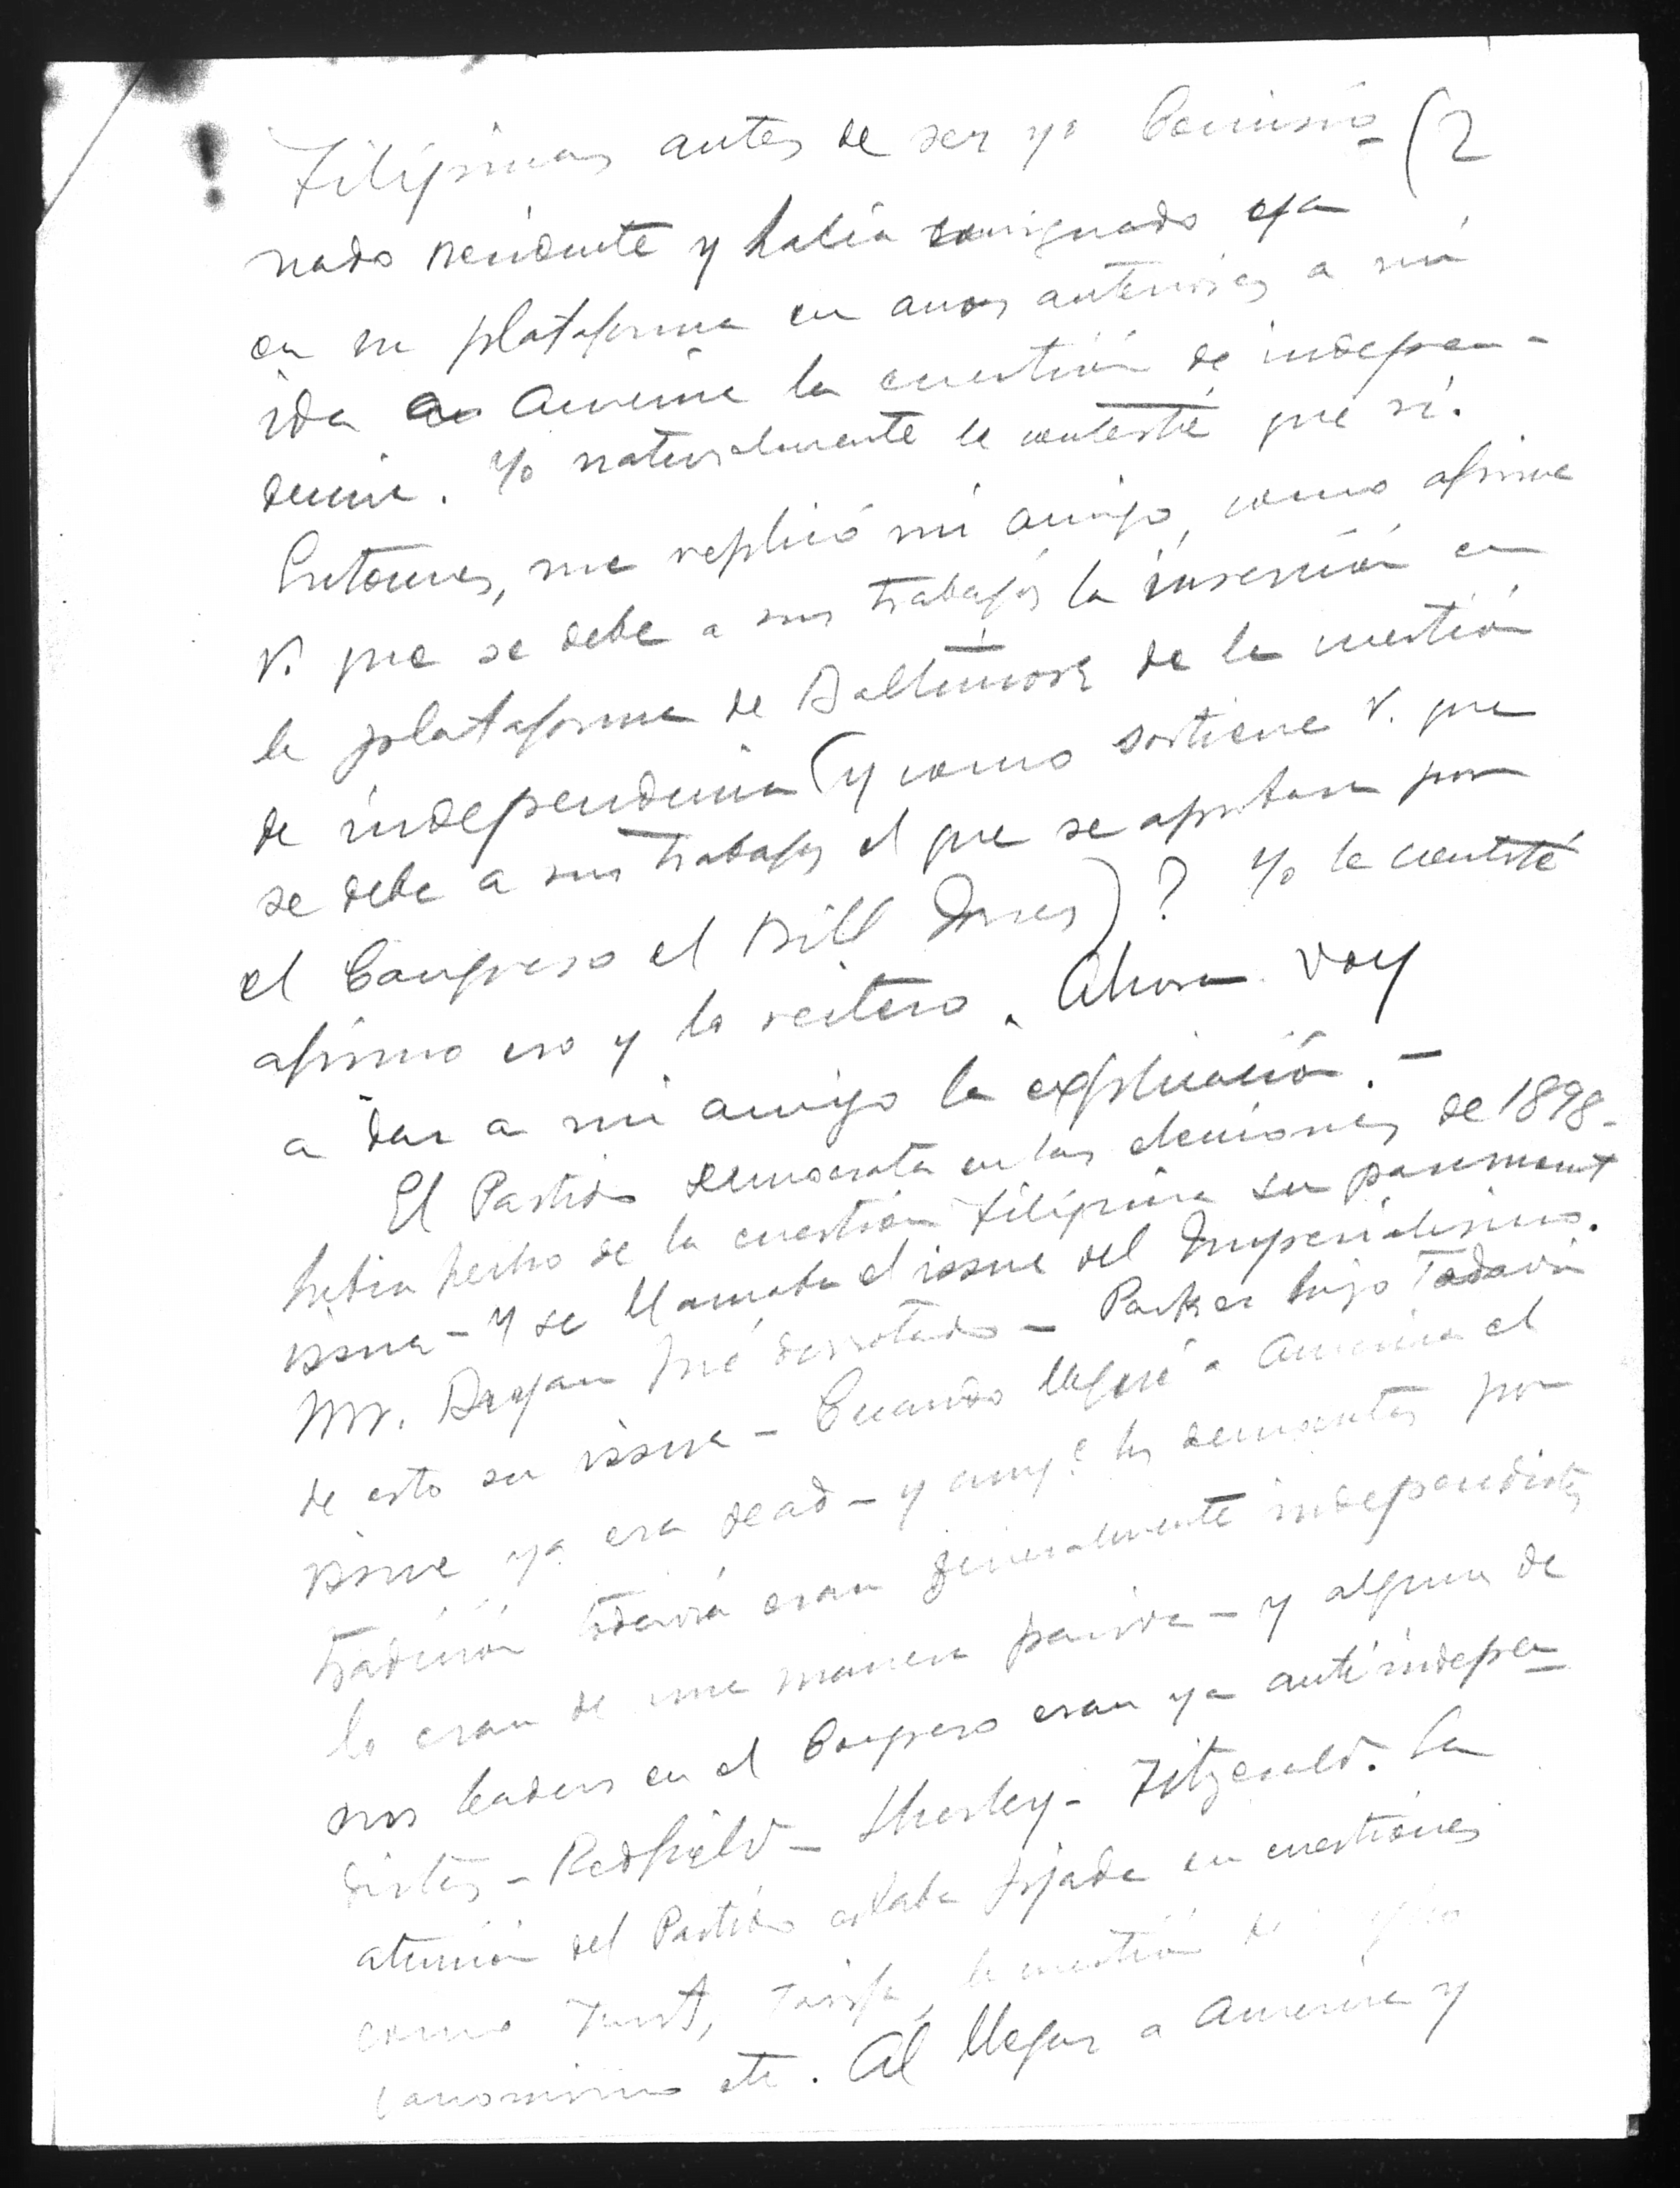 Filipinas antes de ser yo Comisio- (2
nado residente y había consignado ya
en su plataforma en anos anteriores a mi
ida a America la cuestión de indepen-
dencia. Yo naturalmente le contesté que si.
Entonces, me replicó mi amigo, como afirma
V. que se debe a sus trabajos la inserción en
la plataforma de Baltimore de la cuestión
de independencia (y como sostiene V. que
se debe a sus trabajos el que se aprobara por
el Congreso el Bill Jones)? Yo le contesté
afirmo eso y lo reitero. Ahora voy
a dar a mi amigo la explicación. -
El Partido democrata en las elecciones de 1898-
habia hecho de la cuestión Filipina su paramount
issue - y se llamaba el issue del Imperialismo.
Mr. Bryan fué derrotado - Parker hizo Todavia
de esto su issue - Cuando llegué a America el
issue ya era dead - y aunq.e los democratas por
tradición todavía eran generalmente independistas
lo eran de una manera pasiva - y algunos de
sus leaders en el Congreso eran ya antiindepen
distas - Redfield - Sherley - Fitzgerald. La
atención del Partido estaba fijada en cuestiones
como Trust, Tarifa, la cuestión de
etc. Al llegar a America y